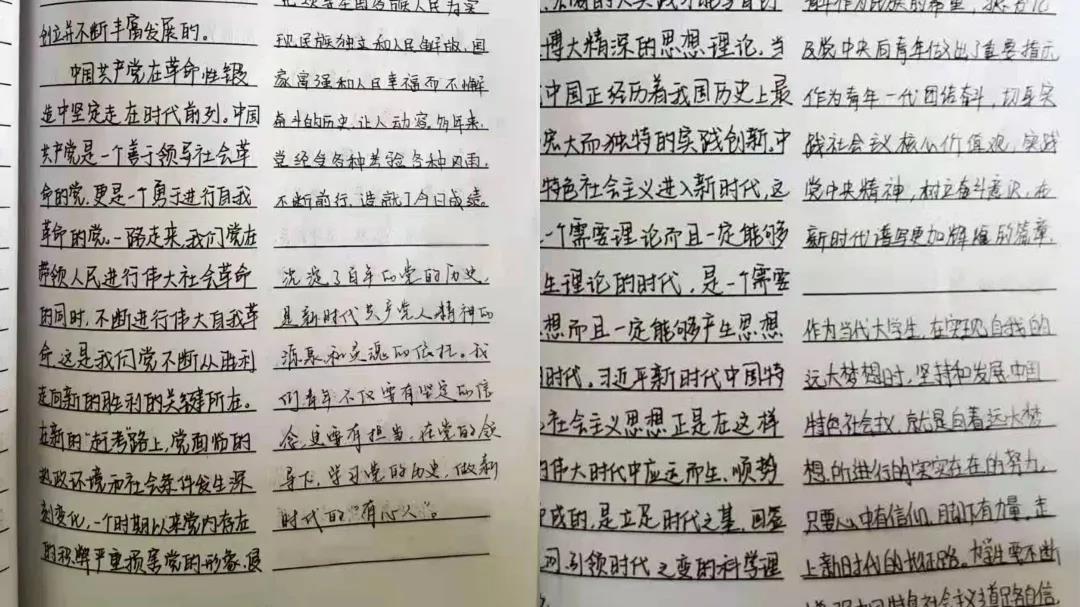 创立并不断丰富发展的。
中国共产党在革命性锻
造中坚定走在时代前列。中国
共产党是一个善于领导社会革
命的党,更是一个勇于进行自我
革命的党。一路走来,我们党在
带领人民进行伟大社会革命
的同时,不断进行伟大自我革
命,这是我们党不断从胜利
走向新的胜利的关键所在。
在新的"赶考"路上,党面临的
执政环境和社会条件发生深
刻变化,一个时期以来党内存在
的积弊严重损害党的形象、侵
现民族独立和人民解放、国
家富强和人民幸福而不懈
奋斗的历史,让人动容。多年来,
党经受各种考验各种风雨,
不断前行,造就了今日成绩
沉淀了百年的党的历史,
是新时代共产党人精神的
源泉和灵魂的依托。我
们青年不仅要有坚定的信
念,还要有担当,在党的领
导下,学习党的历史,做新
时代的"有心人"。
博大精深的思想理论,当
中国正经历着我国历史上最
宏大而独特的实践创新,中
特色社会主义进入新时代,这
一个需要理论而且一定能够
生理论的时代,是一个需要
想而且一定能够产生思想
时代。习近平新时代中国特
社会主义思想正是在这样
伟大时代中应运而生、顺势
成的,是立足时代之基、回答
问、引领时代之变的科学理
及党中央向青年做出了重要指示
作为青年一代团结奋斗,切身实
践社会主义核心价值观,实践
党中央精神,树立奋斗意识,在
新时代谱写更加辉煌的篇章。
作为当代大学生,在实现自我的
远大梦想时,坚持和发展中国
特色社会主义,就是向着远大梦
想,所进行的实实在在的努力,
只要心中有信仰,脚下有力量,走
上新时代的长征路。大学生要不断